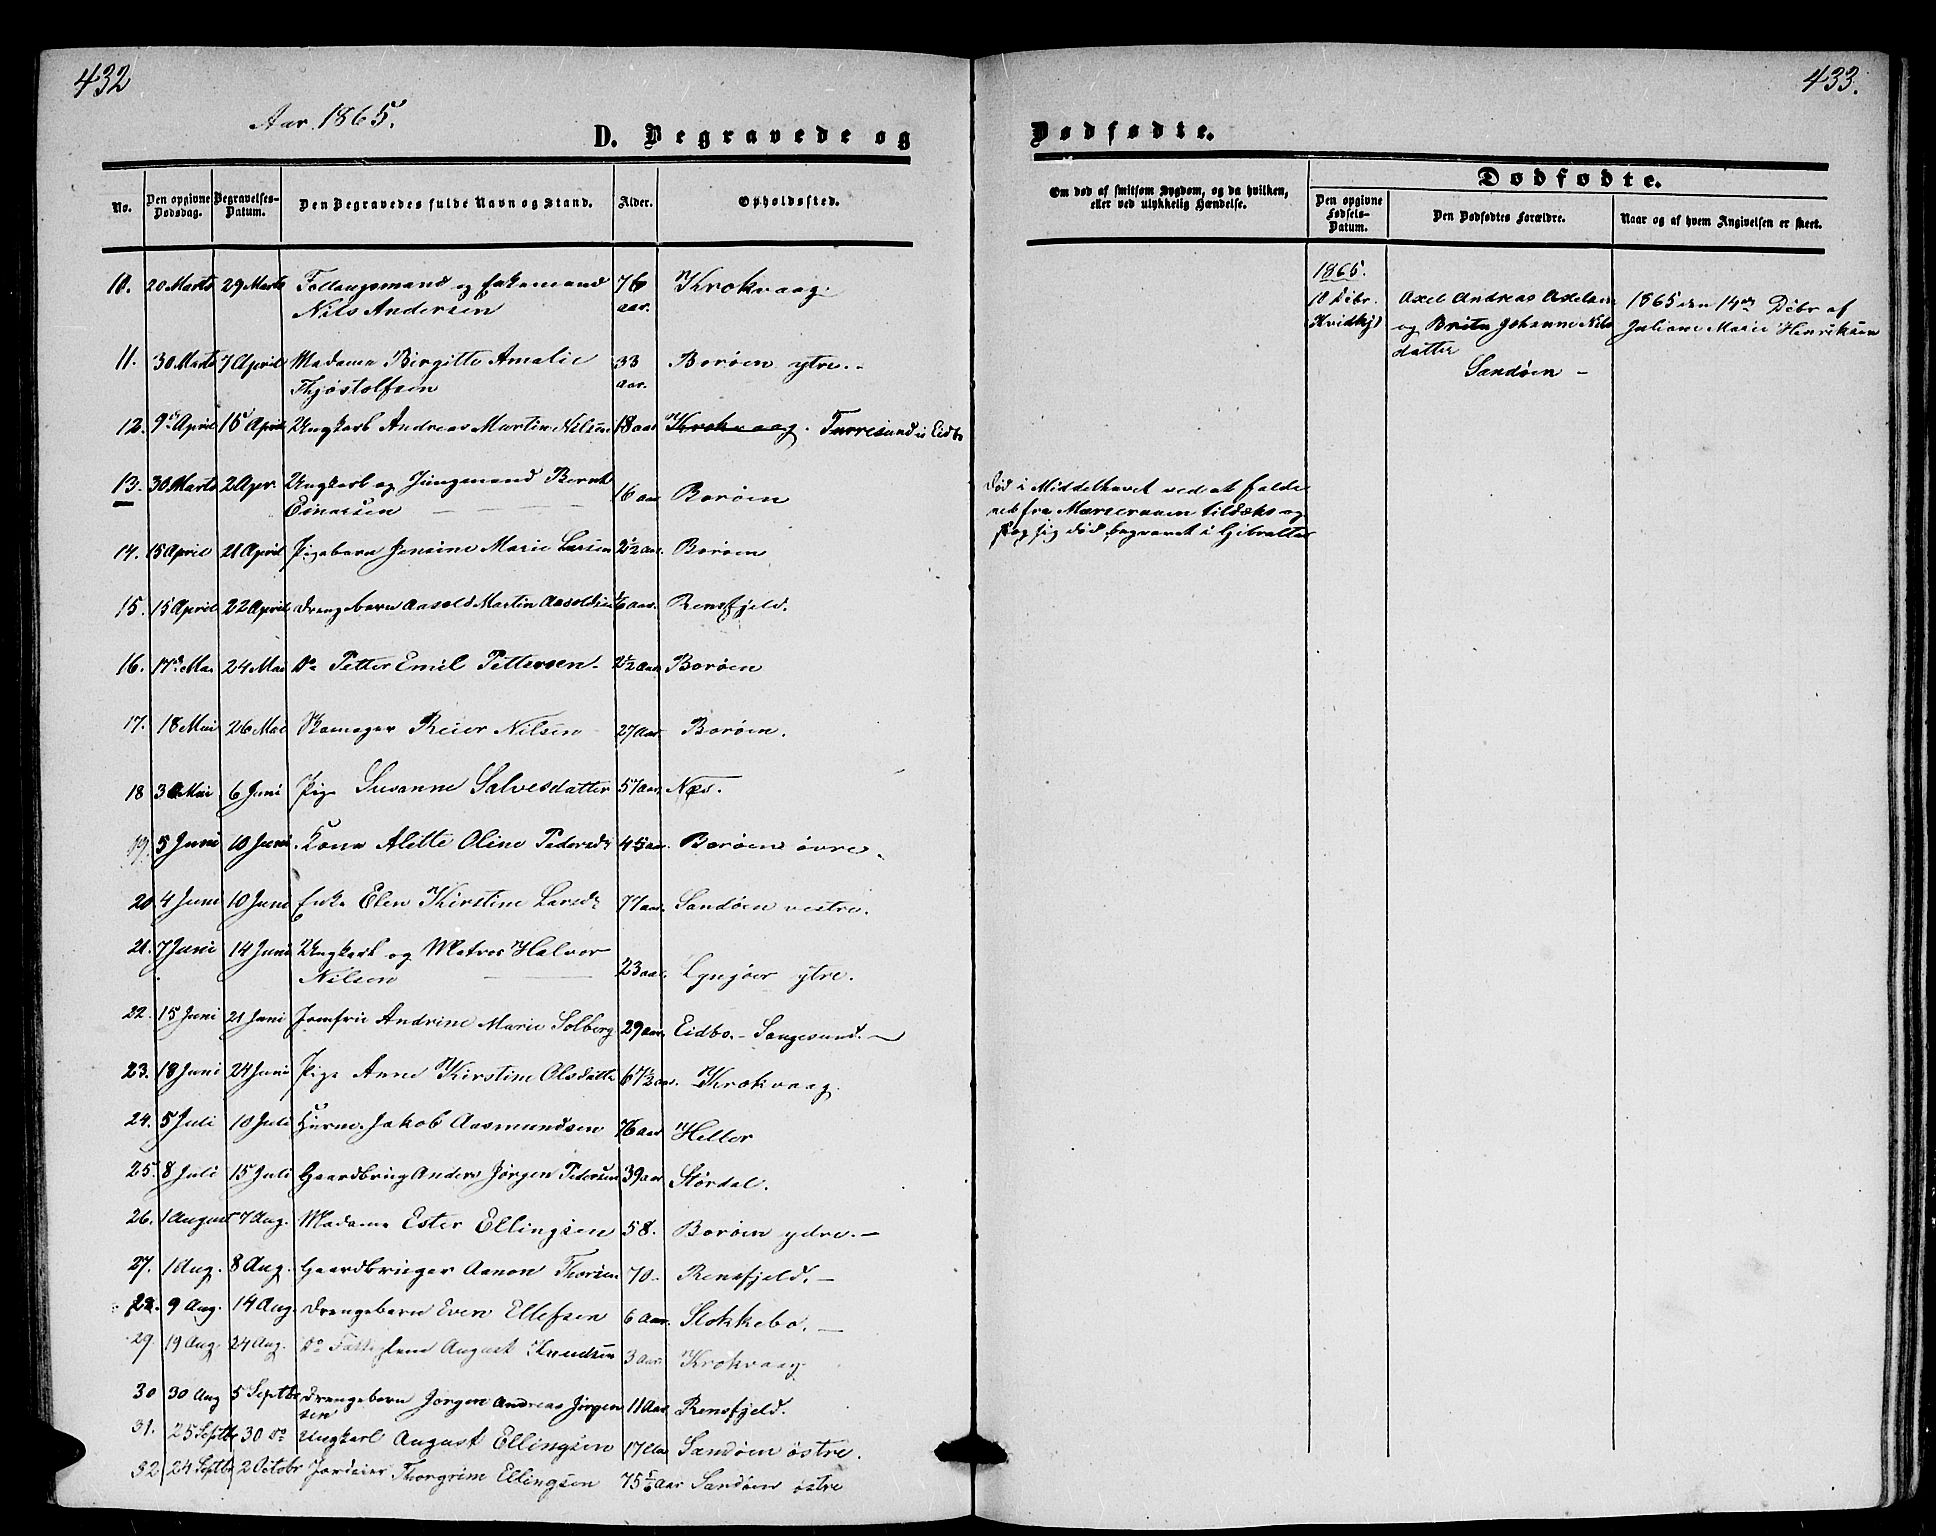 432
Aar 1865.
D. Begravede og
No. Den opgivne Dødsdag. Begravelses-Datum. Den Begravedes fulde Navn og Stand. Alder. Opholdssted.
10. 20 Marts 29 Marts Føllaugsmand og Enkemand 76 Krokvaag.
Nils Andersen aar.
11. 30 Marts 7 April Madame Birgitte Amalie 33 Borøen ytre.-
Thjøstolfsen aar.
12. 9de April 15 April Ungkarl Andreas Martin Nilsen 18 aar Krokvaag. Furresund i Eidbo
13. 30 Marts 2 Apr. Ungkarl og Jungmand Bernt 16 aar Borøen
Einersen
14. 15 April 21 April Pigebarn Jensine Marie Larsen 2½ aar Borøen
15. 15 April 22 April Drengebarn Aasold Martin Aasoldsen 6 aar. Rensfjeld.
16. 17de Mai 24 Mai Do Petter Emil Pettersen 2½ Aar Borøen
17. 18 Mai 26 Mai Reier Nilsen 27 Aar Borøen.
18 30 Mai 6 Juni Pige Susanne Salvesdatter 57 Aar. Næs.
19. 5 Juni 10 Juni Kone Alette Oline Pedersdr 45 aar. Borøen øvre.
20 4 Juni 10 Juni Enke Elen Kirstine Larsdr 77 aar. Sandøen vestre.
21. 7 Juni 14 Juni Ungkarl og Matros Halvor
Nilsen 23 aar. Lyngøer ytre.
22. 15 Juni 21 Juni Jomfru Andrine Marie Solberg 29 aar. Eidbo.- Songesund.-
23. 18 Juni 24 Juni Pige Anne Kirstine Olsdatte 67½ aar. Krokvaag.
24. 5 Juli 10 Juli Jakob Aasmundsen 76 aar Heller
25. 8 Juli 15 Juli Gaardbrug Anders Jørgen Pedersen 39 aar Størdal.
26. 1 August 7 Aug. Madame Ester Ellingsen 58. Borøen ydre.-
27. 1 Aug. 8 Aug. Gaardbruger Aanon Thorsen 70- Rensfjeld.-
28. 9 Aug. 14 Aug. Drengebarn Even Ellefsen 6 Aar. Stokkebo.-
29 19 Aug. 24 Aug. Do August Knudsen 3 Aar. Krokvaag
30 30 Aug 5 Septbr Drengebarn Jørgen Andreas Jørgen 11 Aar Rensfjeld.
sen
31. 25 Septb 30 Do Ungkarl August Ellingsen 17 Aar Sandøen østre.
32 24 Septbr 2 Octobr Jordeier Thorgrim Ellingsen 75 5/6 Aar Sandøen østre
433.
Dødfødte.
Om død af smitsom Sygdom, og da hvilken,
eller ved ulykkelig Hændelse.
Dødfødte.
Den opgivne Fødsels-Datum. Den Dødfødtes Forældre. Naar og af hvem Angivelsen er skeet.
1865.
10 Debr. Axel Andreas Axelsen 1865 den 14de Debr af
Hvidkjl og Brita Johanne Nils Juliane Marie Henriksen
datter
Sandøen -
Død i Middelhavet ved at falde
ned fra Mærseraaen til dæks og
slog sig død begravet i Gibralter